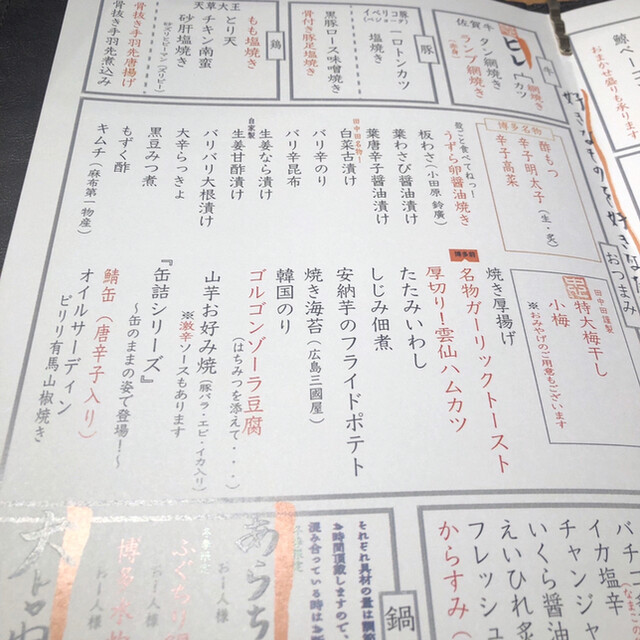 鯨ベーコン
おまかせ盛り
好きなものを好きな
おつまみ
牛
ヒレ
網焼き
カツ
佐賀牛
タン網焼き
ランプ網焼き
豚
イベリコ豚
一口トンカツ
塩焼き
黒豚ロース味噌焼き
骨付き豚足塩焼き
鶏
もも塩焼き
とり天
天草大王
チキン南蛮
砂肝塩焼き
骨抜き手羽先唐揚げ
骨抜き手羽先煮込み
博多名物
酢もつ
辛子明太子
辛子高菜
殻ごと食べてねっ!
うずら卵醤油焼き
板わさ(小田原 鈴廣)
葉わさび醤油漬け
葉唐辛子醤油漬け
田中田名物!
白菜古漬け
バリ辛のり
バリ辛昆布
生姜なら漬け
自家製
生姜甘酢漬け
バリバリ大根漬け
大辛らっきょ
黒豆みつ煮
もずく酢
キムチ(麻布第一物産)
田中田謹製
特大梅干し
小梅
※おみやげのご用意もございます
焼き厚揚げ
名物ガーリックトースト
博多前
厚切り!雲仙ハムカツ
たたみいわし
しじみ佃煮
安納芋のフライドポテト
焼き海苔(広島三國屋)
韓国のり
ゴルゴンゾーラ豆腐
(はちみつを添えて・・・)
山芋お好み焼(豚バラ・エビ・イカ入り)
※激辛ソースもあります
『缶詰シリーズ』
〜缶のままの姿で登場!〜
鯖缶(唐辛子入り)
オイルサーディン
ピリリ有馬山椒焼き
イカ塩辛
チャンジャ
いくら醤油
えいひれ炙
フレッシュ
からすみ
鍋
それぞれ具材の量は
お時間頂戴しますので、
混み合っている時は
あらち
お一人様
お一人様